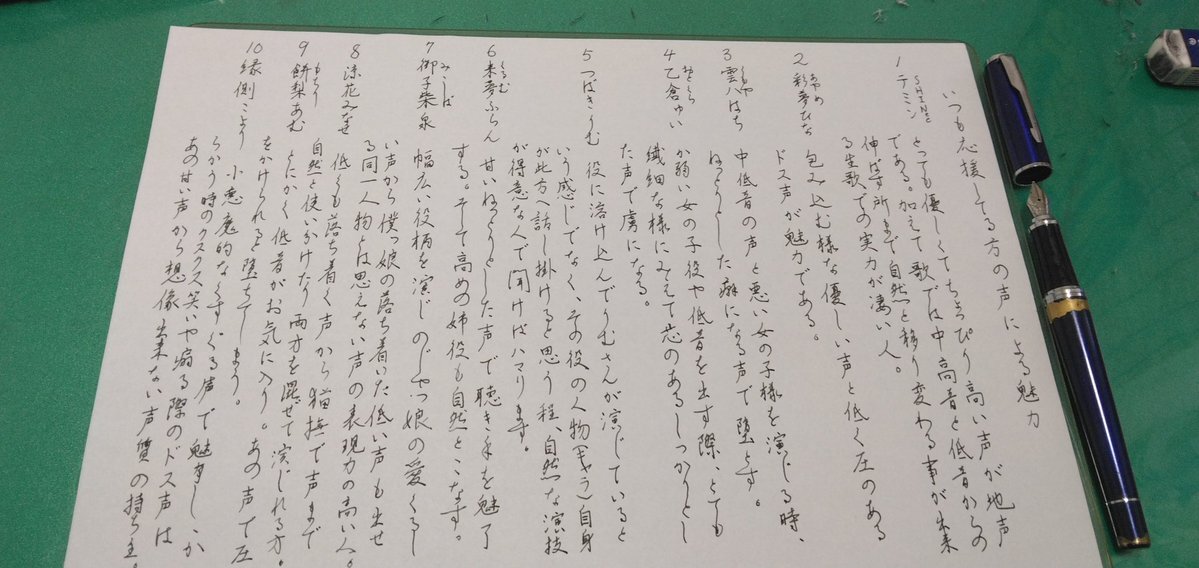 いつも応援してる方の声による魅力
1 テミン
SHINee
とっても優しくてちょっぴり高い声が地声
である。加えて歌では中高音と低音からの
伸ばす所まで自然と移り変わる事が出来
る生歌での実力が凄い人。
2 彩夢ひな
あやめ
包み込む様な優しい声と低く圧のある
ドス声が魅力である。
3 雲八はち
くもや
中低音の声と悪い女の子様を演じる時、
ねっとりとした癖になる声で堕とす。
4 乙倉ゅい
おとくら
か弱い女の子役や低音を出す際、とても
繊細な様にみえて芯のあるしっかりとし
た声で虜になる。
5 つばきりむ
役に溶け込んでりむさんが演じていると
いう感じでなく、その役の人物(キャラ)自身
が此方へ話し掛けると思う程、自然な演技
が得意な人で聞けばハマります。
6 来夢ふらん
くるむ
甘いねっとりとした声で聴き手を魅了
する。そして高めの姉役も自然とこなす。
7 御子柴泉
みこしば
幅広い役柄を演じ のじゃっ娘の愛くるし
い声から僕っ娘の落ち着いた低い声も出せ
る同一人物とは思えない声の表現力の高い人。
8 涼花みなせ
低くも落ち着く声から猫撫で声まで
自然と使いわけたり両才を混ぜて演じれる方。
9 餅梨あむ
もちり
とにかく低音がお気に入り。あの声で圧
をかけられると堕ちてしまう。
10 縁側こより
小悪魔的なくすぐる声で魅了し、か
らかう時のクスクス笑いや煽る際のドス声は
あの甘い声から想像出来ない声質の持ち主。